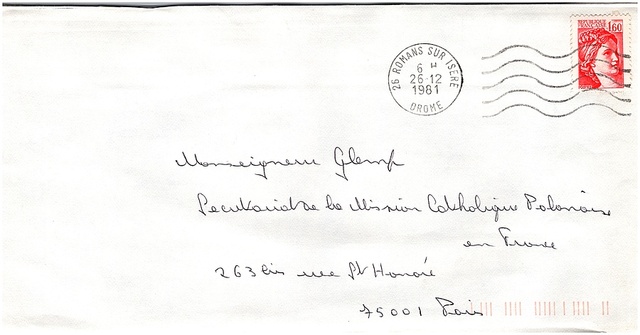 REPUBLIQUE FRANCAISE
1.60
26 ROMANS SUR ISERE
6 H
26-12
1981
DROME
Monseigneur Glemp
Secrétariat de la Mission Catholique Polonaise
en France
263 bis rue St Honoré
75001 Paris